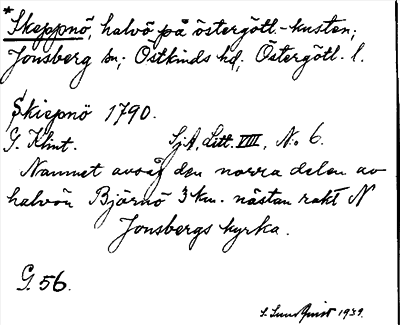 * Skeppnö, halvö på östergötl.-kusten;
Jonsberg sn; Östkinds hd; Östergötl. l.
Skiepnö 1790.
G. Klint. SjA, Litt. VIII, No 6.
Namnet avsåg den norra delen av
halvön Björnö 3 km. nästan rakt N
Jonsbergs kyrka.
G. 56.
S. Lundquist 1939.